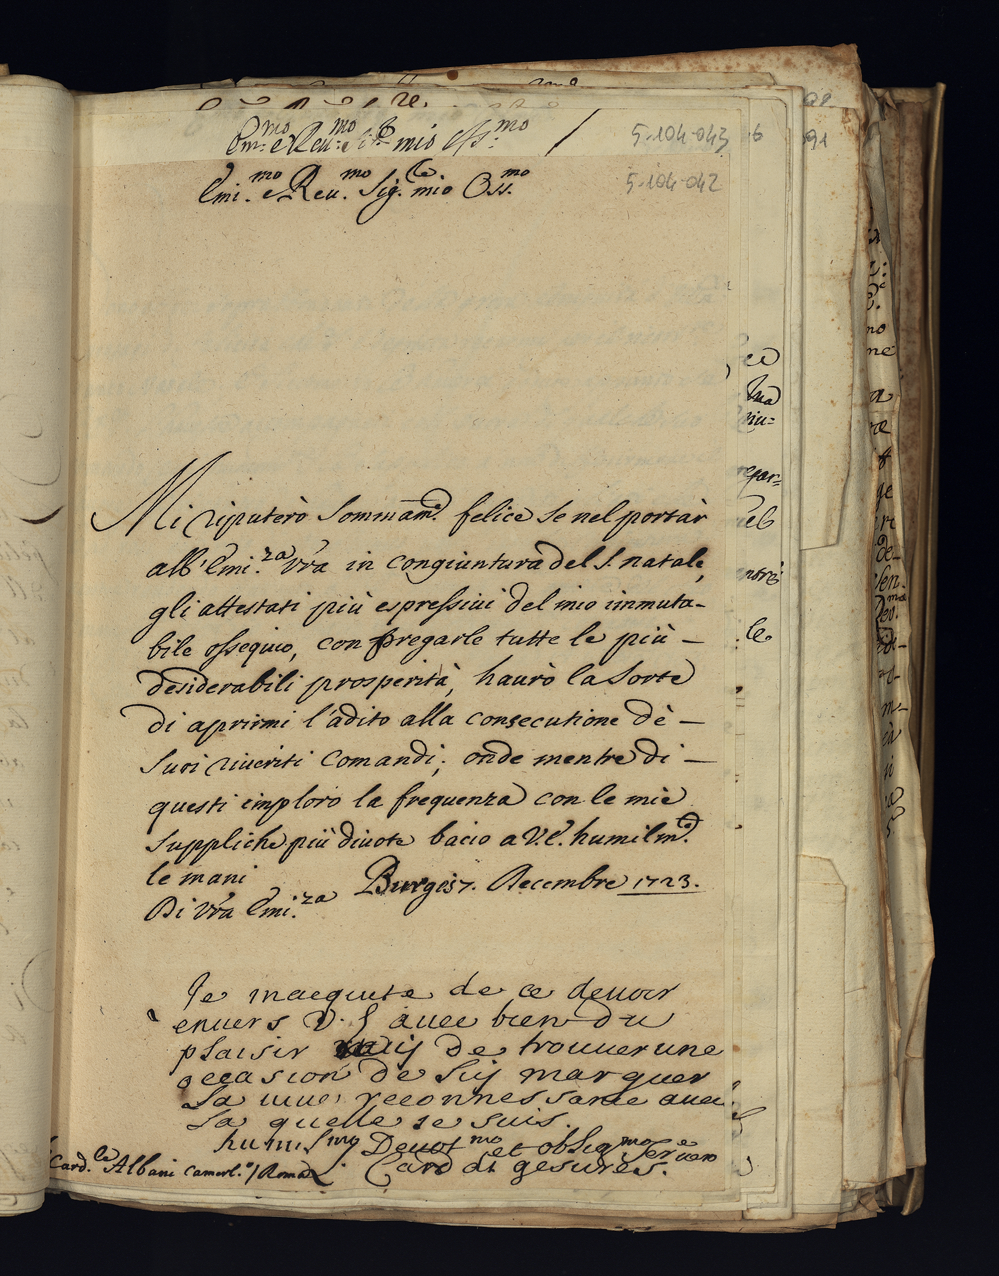 Em.mo e Reu.mo Sig.re mio Oss.mo
5-104-043
91
Emi.mo e Reu.mo Sig.re mio Oss.mo
5-104-042
Mi riputerò sommam.e felice se nel portar
all'Emi.za Vra in congiuntura del S. natale,
gli attestati più espressiui del mio immuta-
bile ossequio, con pregarle tutte le più –
desiderabili prosperità, haurò la sorte
di aprirmi l'adito alla consecutione dè –
suoi riueriti comandi; onde mentre di –
questi imploro la frequenza con le mie
suppliche più diuote bacio a V.E. humilm.te
le mani
Burges 7. Decembre 1723.
Di Vra Emi.za
Je macquite de ce deuoir
enuers V. E auec bien du
plaisir de trouuer une
occasion de luy marquer
la uiue reconnessance auec
la quelle je suis.
humil.mo Deuot.mo et obblig.mo Ser
Card di gesures.
Card.le Albani Camerl.o / Roma